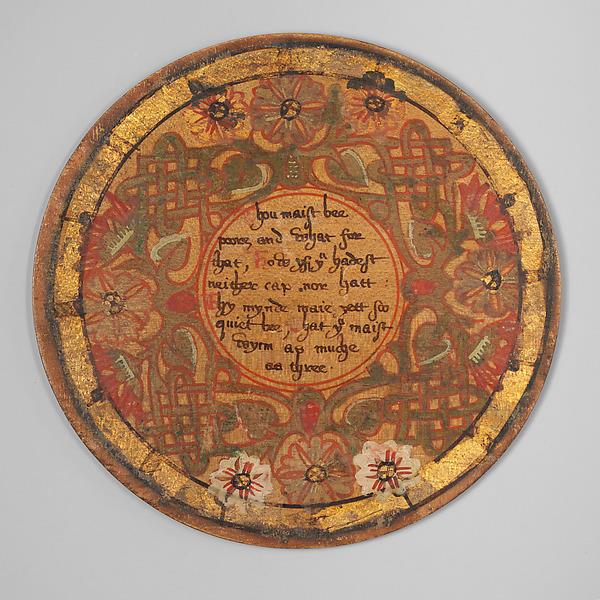 hou maist bee
poore, and what for
that, how yf yu hadest
neither cap nor hatt:
hy mynde maie yett so
quiet bee, hat yu maist
wynn as muche
as three.